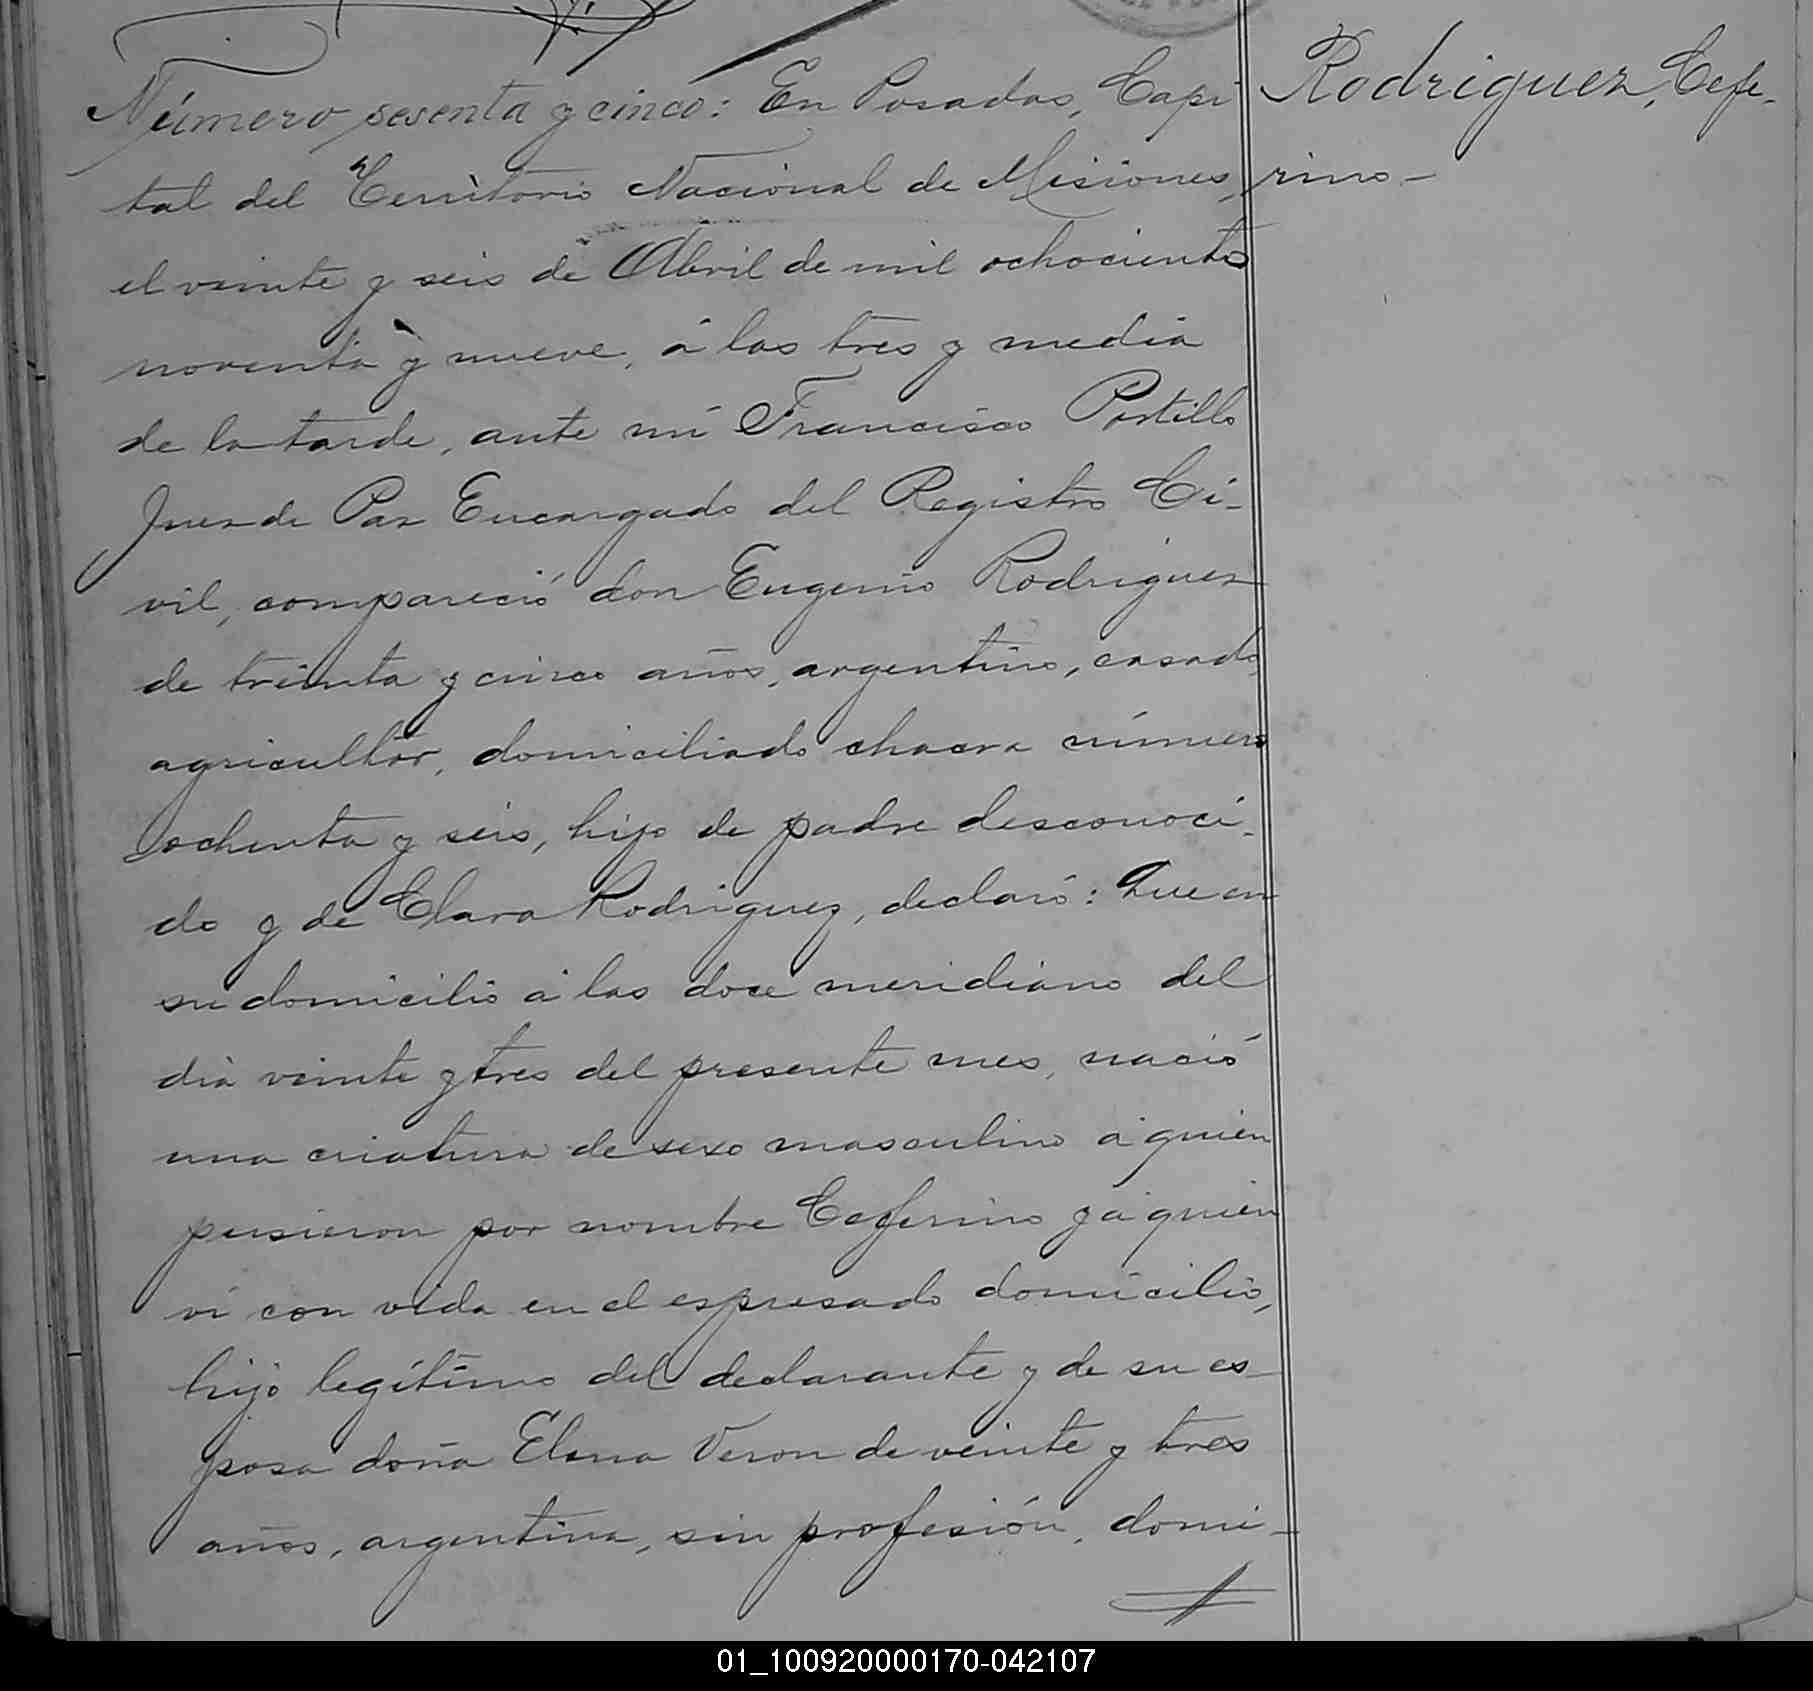 Número sesenta y cinco: En Posadas, Capi
tal del Territorio Nacional de Misiones,
el veinte y seis de Abril de mil ochocientos
noventa y nueve, á las tres y media
de la tarde, ante mi Francisco Portillo
Juez de Paz Encargado del Registro Ci-
vil, compareció don Eugenio Rodriguez
de treinta y cinco años, argentino, casado,
agricultor, domiciliado chacra número
ochenta y seis, hijo de padre desconoci-
do y de Clara Rodriguez, declaró: Que en
su domicilio á las doce meridiano del
dia veinte y tres del presente mes, nació
una criatura de sexo masculino á quien
pusieron por nombre Ceferino y á quien
ví con vida en el espresado domicilio,
hijo legítimo del declarante y de su es-
posa doña Elena Veron de veinte y tres
años, argentina, sin profesión, domi-
Rodriguez, Cefe-
rino-
01_100920000170-042107